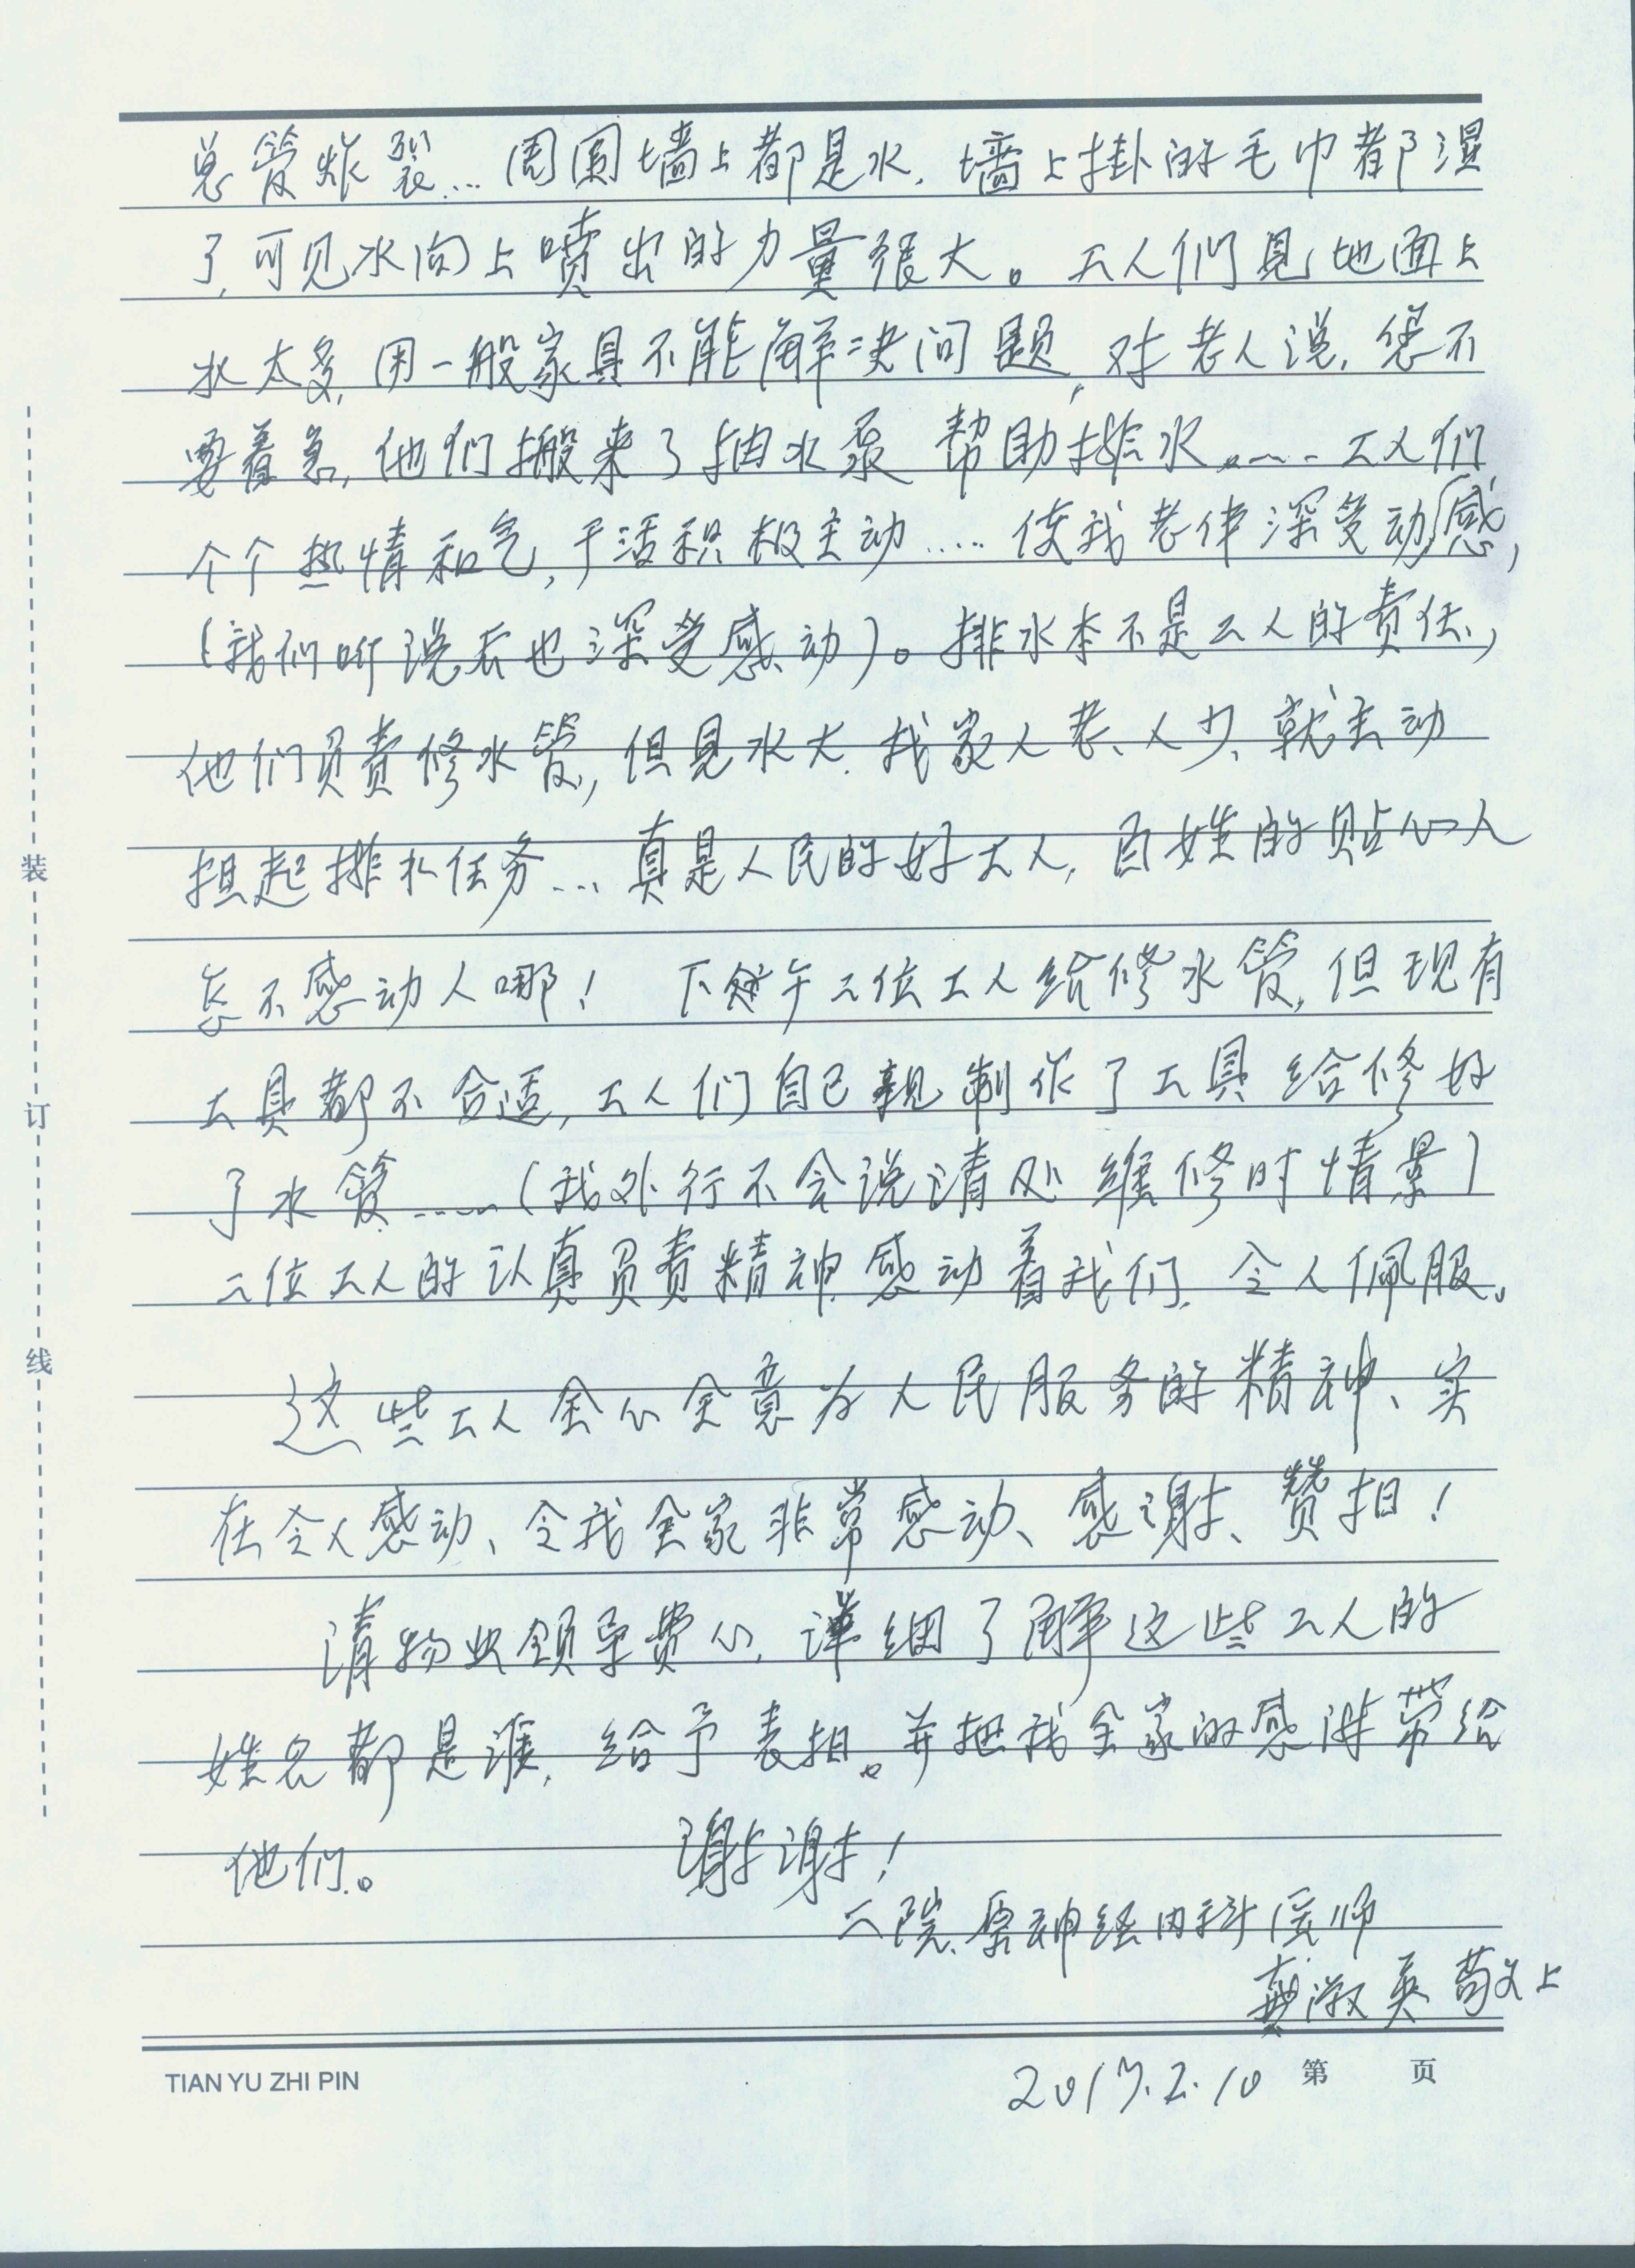 总管炸裂…周围墙上都是水，墙上挂的毛巾都湿
了，可见水向上喷出的力量很大。工人们见地面上
水太多，用一般家具不能解决问题，对老人说，您不
要着急，他们搬来了抽水泵 帮助排水……工人们
个个热情和气，干活积极主动……使我老伴深受动感，
（我们听说后也深受感动）。排水本不是工人的责任，
他们负责修水管，但见水大，我家人老、人少、就主动
担起排水任务…真是人民的好工人，百姓的贴心人
怎不感动人哪！ 下午二位工人给修水管，但现有
工具都不合适，工人们自己亲制作了工具给修好
了水管……（我外行不会说清处维修时情景）
二位工人的认真负责精神感动着我们，令人佩服。
这些工人全心全意为人民服务的精神、实
在令人感动、令我全家非常感动、感谢、赞扣！
请物业领导费心，详细了解这些工人的
姓名都是谁，给予表扣。并把我全家的感谢带给
他们。 谢谢！
二院原神经内科医师
龚淑英敬上
TIAN YU ZHI PIN
2017.2.10 第 页
装
订
线